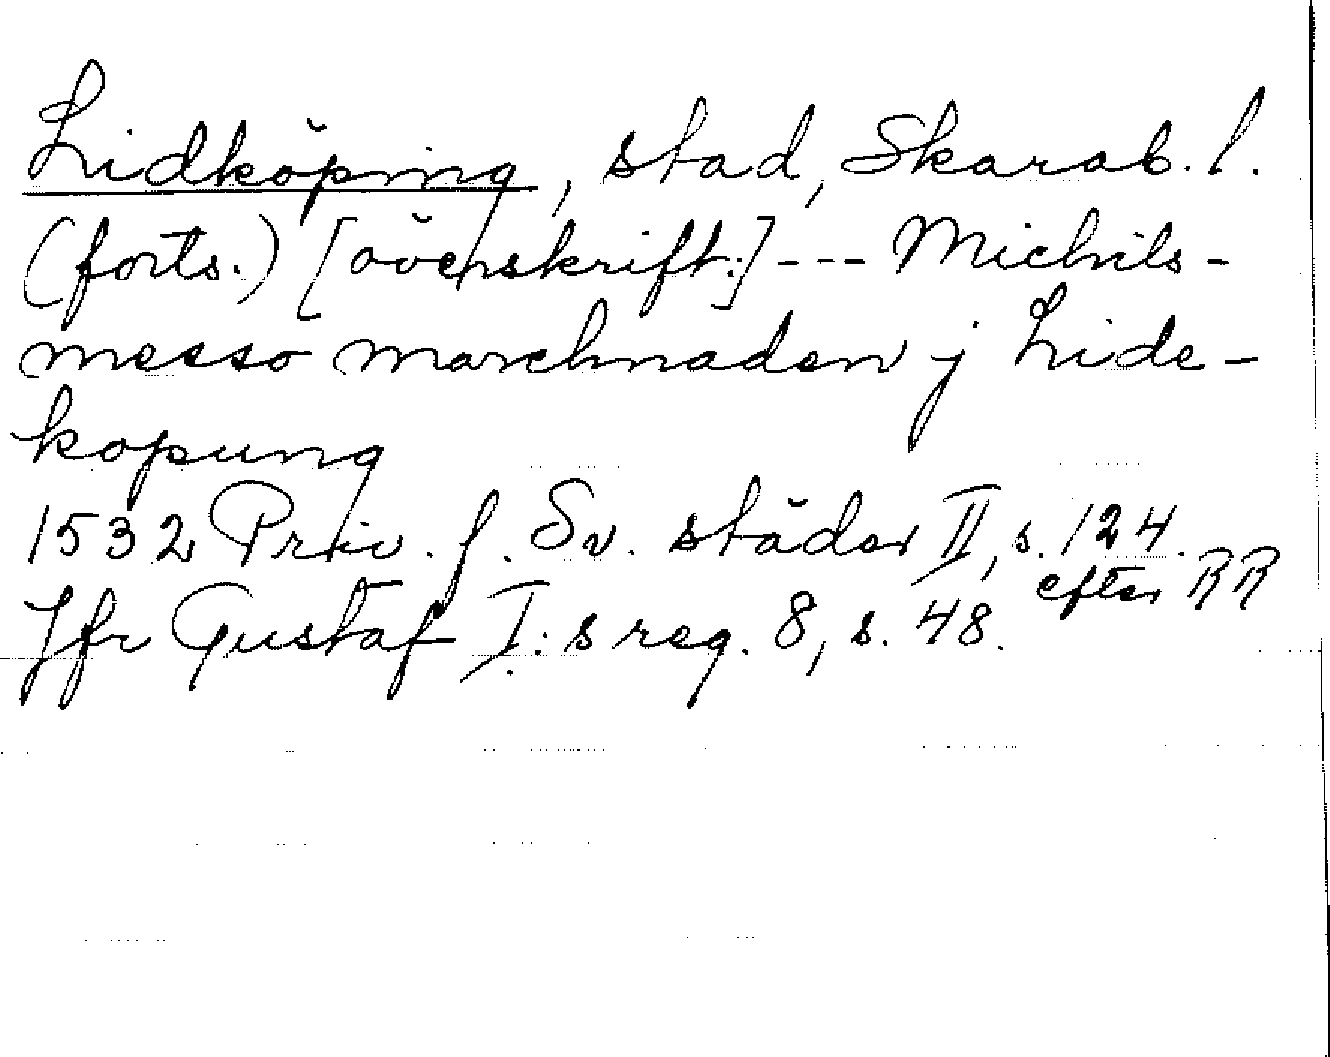 Lidköping, stad, Skarab. l.
(forts.) [överskrift:] --- Michils-
messo marchnaden j Lide-
kopung
1532 Priv. f. Sv. städer II, s. 124.
efter RR
Jfr Gustaf I:s reg. 8, s. 48.